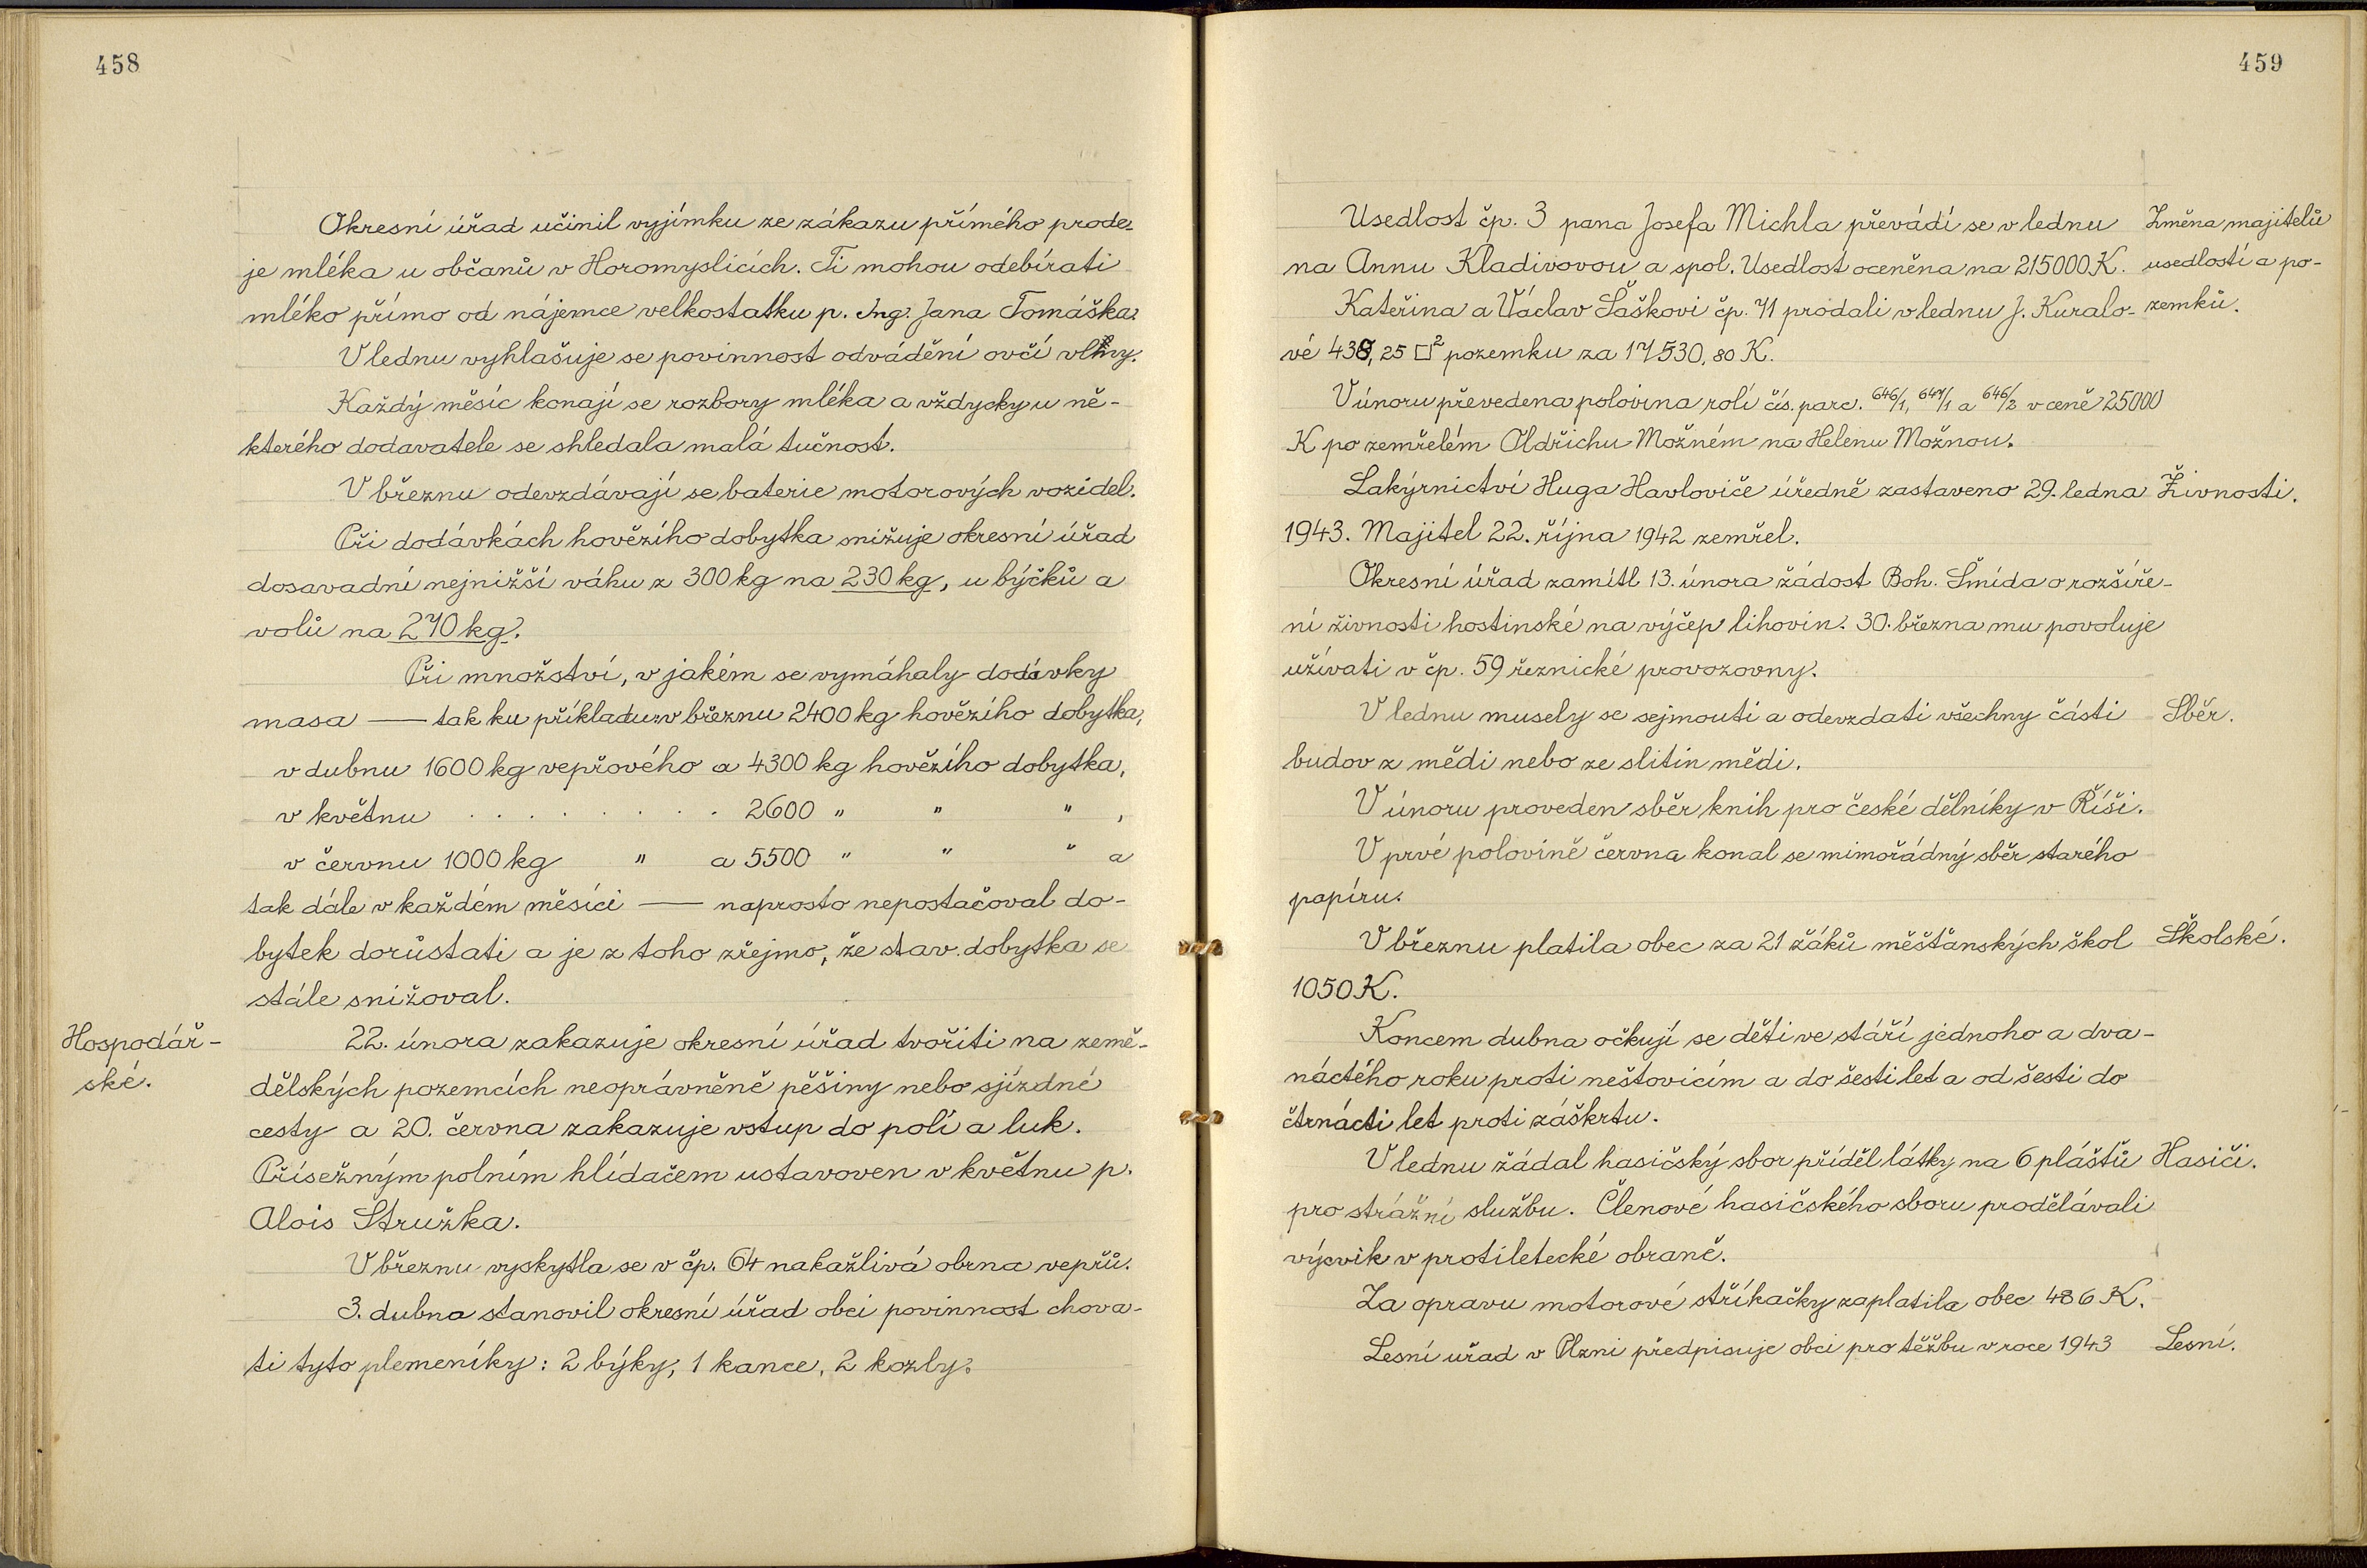 458
Okresní úřad učinil vyjímku ze zákazu přímého prode-
je mléka u občanů v Horomyslicích. Ti mohou odebírati
mléko přímo od nájemce velkostatku p. Ing. Jana Tomáška.
V lednu vyhlašuje se povinnost odvádění ovčí vlny.
Každý měsíc konají se rozbory mléka a vždycky u ně-
kterého dodavatele se shledala malá tučnost.
V březnu odevzdávají se baterie motorových vozidel.
Při dodávkách hovězího dobytka snižuje okresní úřad
dosavadní nejnižší váhu z 300 kg na 230 kg, u býčků a
volů na 270 kg.
Při množství, v jakém se vymáhaly dodávky
masa — tak ku příkladu v březnu 2400 kg hovězího dobytka,
v dubnu 1600 kg vepřového a 4300 kg hovězího dobytka,
v květnu . . . . . . . . . 2600 " " " ,
v červnu 1000 kg " a 5500 " " " a
tak dále v každém měsíci — naprosto nepostačoval do-
bytek dorůstati a je z toho zřejmo, že stav dobytka se
stále snižoval.
Hospodář-
ské.
22. února zakazuje okresní úřad tvořiti na země-
dělských pozemcích neoprávněně pěšiny nebo sjízdné
cesty a 20. června zakazuje vstup do polí a luk.
Přísežným polním hlídačem ustavoven v květnu p.
Alois Stružka.
V březnu vyskytla se v čp. 64 nakažlivá obrna vepřů.
3. dubna stanovil okresní úřad obci povinnost chova-
ti tyto plemeníky: 2 býky, 1 kance, 2 kozly.
459
Usedlost čp. 3 pana Josefa Michla převádí se v lednu
na Annu Kladivovou a spol. Usedlost oceněna na 215000 K.
Změna majitelů
usedlostí a po-
zemků.
Kateřina a Václav Šaškovi čp. 71 prodali v lednu J. Kuralo-
vé 438,25 □² pozemku za 17530,80 K.
V únoru převedena polovina rolí čís. parc. 646/1, 647/1 a 646/2 v ceně 25000
K po zemřelém Oldřichu Možném na Helenu Možnou.
Lakýrnictví Huga Havloviče úředně zastaveno 29. ledna
Živnosti.
1943. Majitel 22. října 1942 zemřel.
Okresní úřad zamítl 13. února žádost Boh. Šmída o rozšíře-
ní živnosti hostinské na výčep lihovin. 30. března mu povoluje
užívati v čp. 59 řeznické provozovny.
V lednu musely se sejmouti a odevzdati všechny části
Sběr.
budov z mědi nebo ze slitin mědi.
V únoru proveden sběr knih pro české dělníky v Říši.
V prvé polovině června konal se mimořádný sběr starého
papíru.
V březnu platila obec za 21 žáků měšťanských škol
Školské.
1050 K.
Koncem dubna očkují se děti ve stáří jednoho a dva-
náctého roku proti neštovicím a do šesti let a od šesti do
čtrnácti let proti záškrtu.
V lednu žádal hasičský sbor příděl látky na 6 plášťů
Hasiči.
pro strážní službu. Členové hasičského sboru prodělávali
výcvik v protiletecké obraně.
Za opravu motorové stříkačky zaplatila obec 486 K.
Lesní uřad v Plzni předpisuje obci pro těžbu v roce 1943
Lesní.